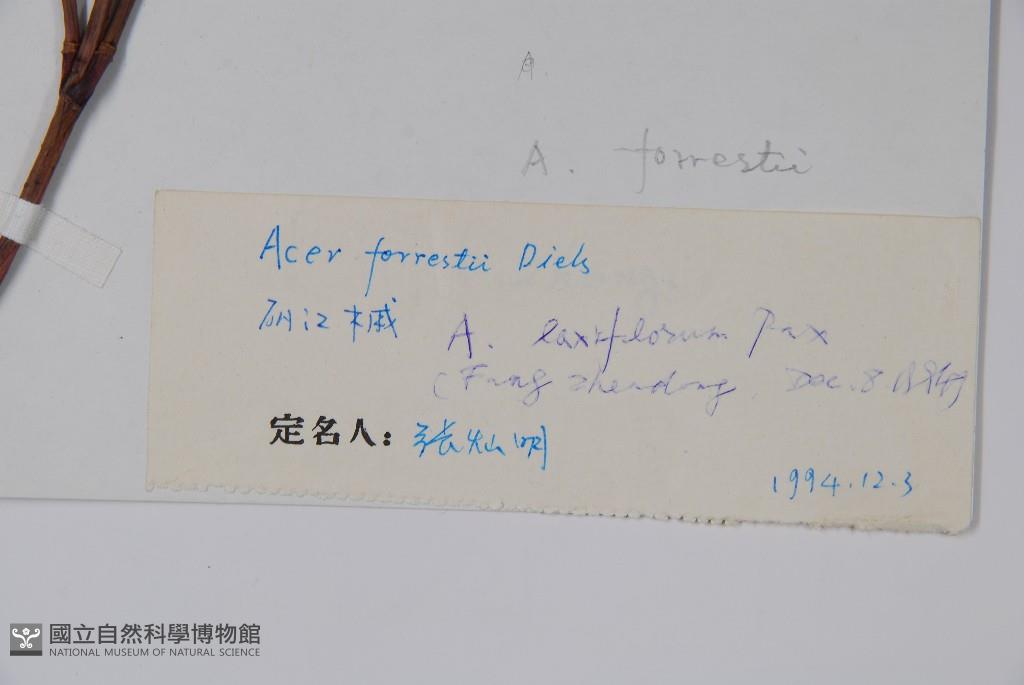 A.
A. forrestii
Acer forrestii Diels
江槭
A. laxiflorum Pax
(Fang Zhendong, Dec. 8. 1994)
定名人：张灿明
1994.12.3
國立自然科學博物館
NATIONAL MUSEUM OF NATURAL SCIENCE